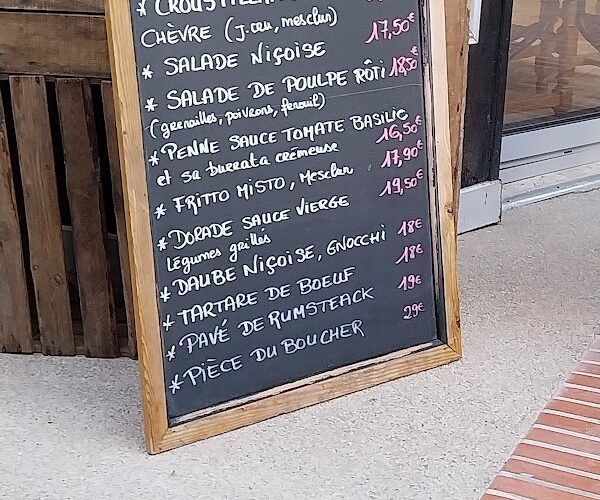 * CROUSTILLANT
CHÈVRE (J. cru, mesclun)
* SALADE NIÇOISE 17,50€
* SALADE DE POULPE RÔTI 18,50€
(grenailles, poivrons, fenouil)
* PENNE SAUCE TOMATE BASILIC
et sa burrata crémeuse 16,50€
* FRITTO MISTO, Mesclun 17,90€
* DORADE SAUCE VIERGE 19,50€
légumes grillés
* DAUBE NIÇOISE, GNOCCHI 18€
* TARTARE DE BOEUF 18€
* PAVÉ DE RUMSTEACK 19€
* PIÈCE DU BOUCHER 29€